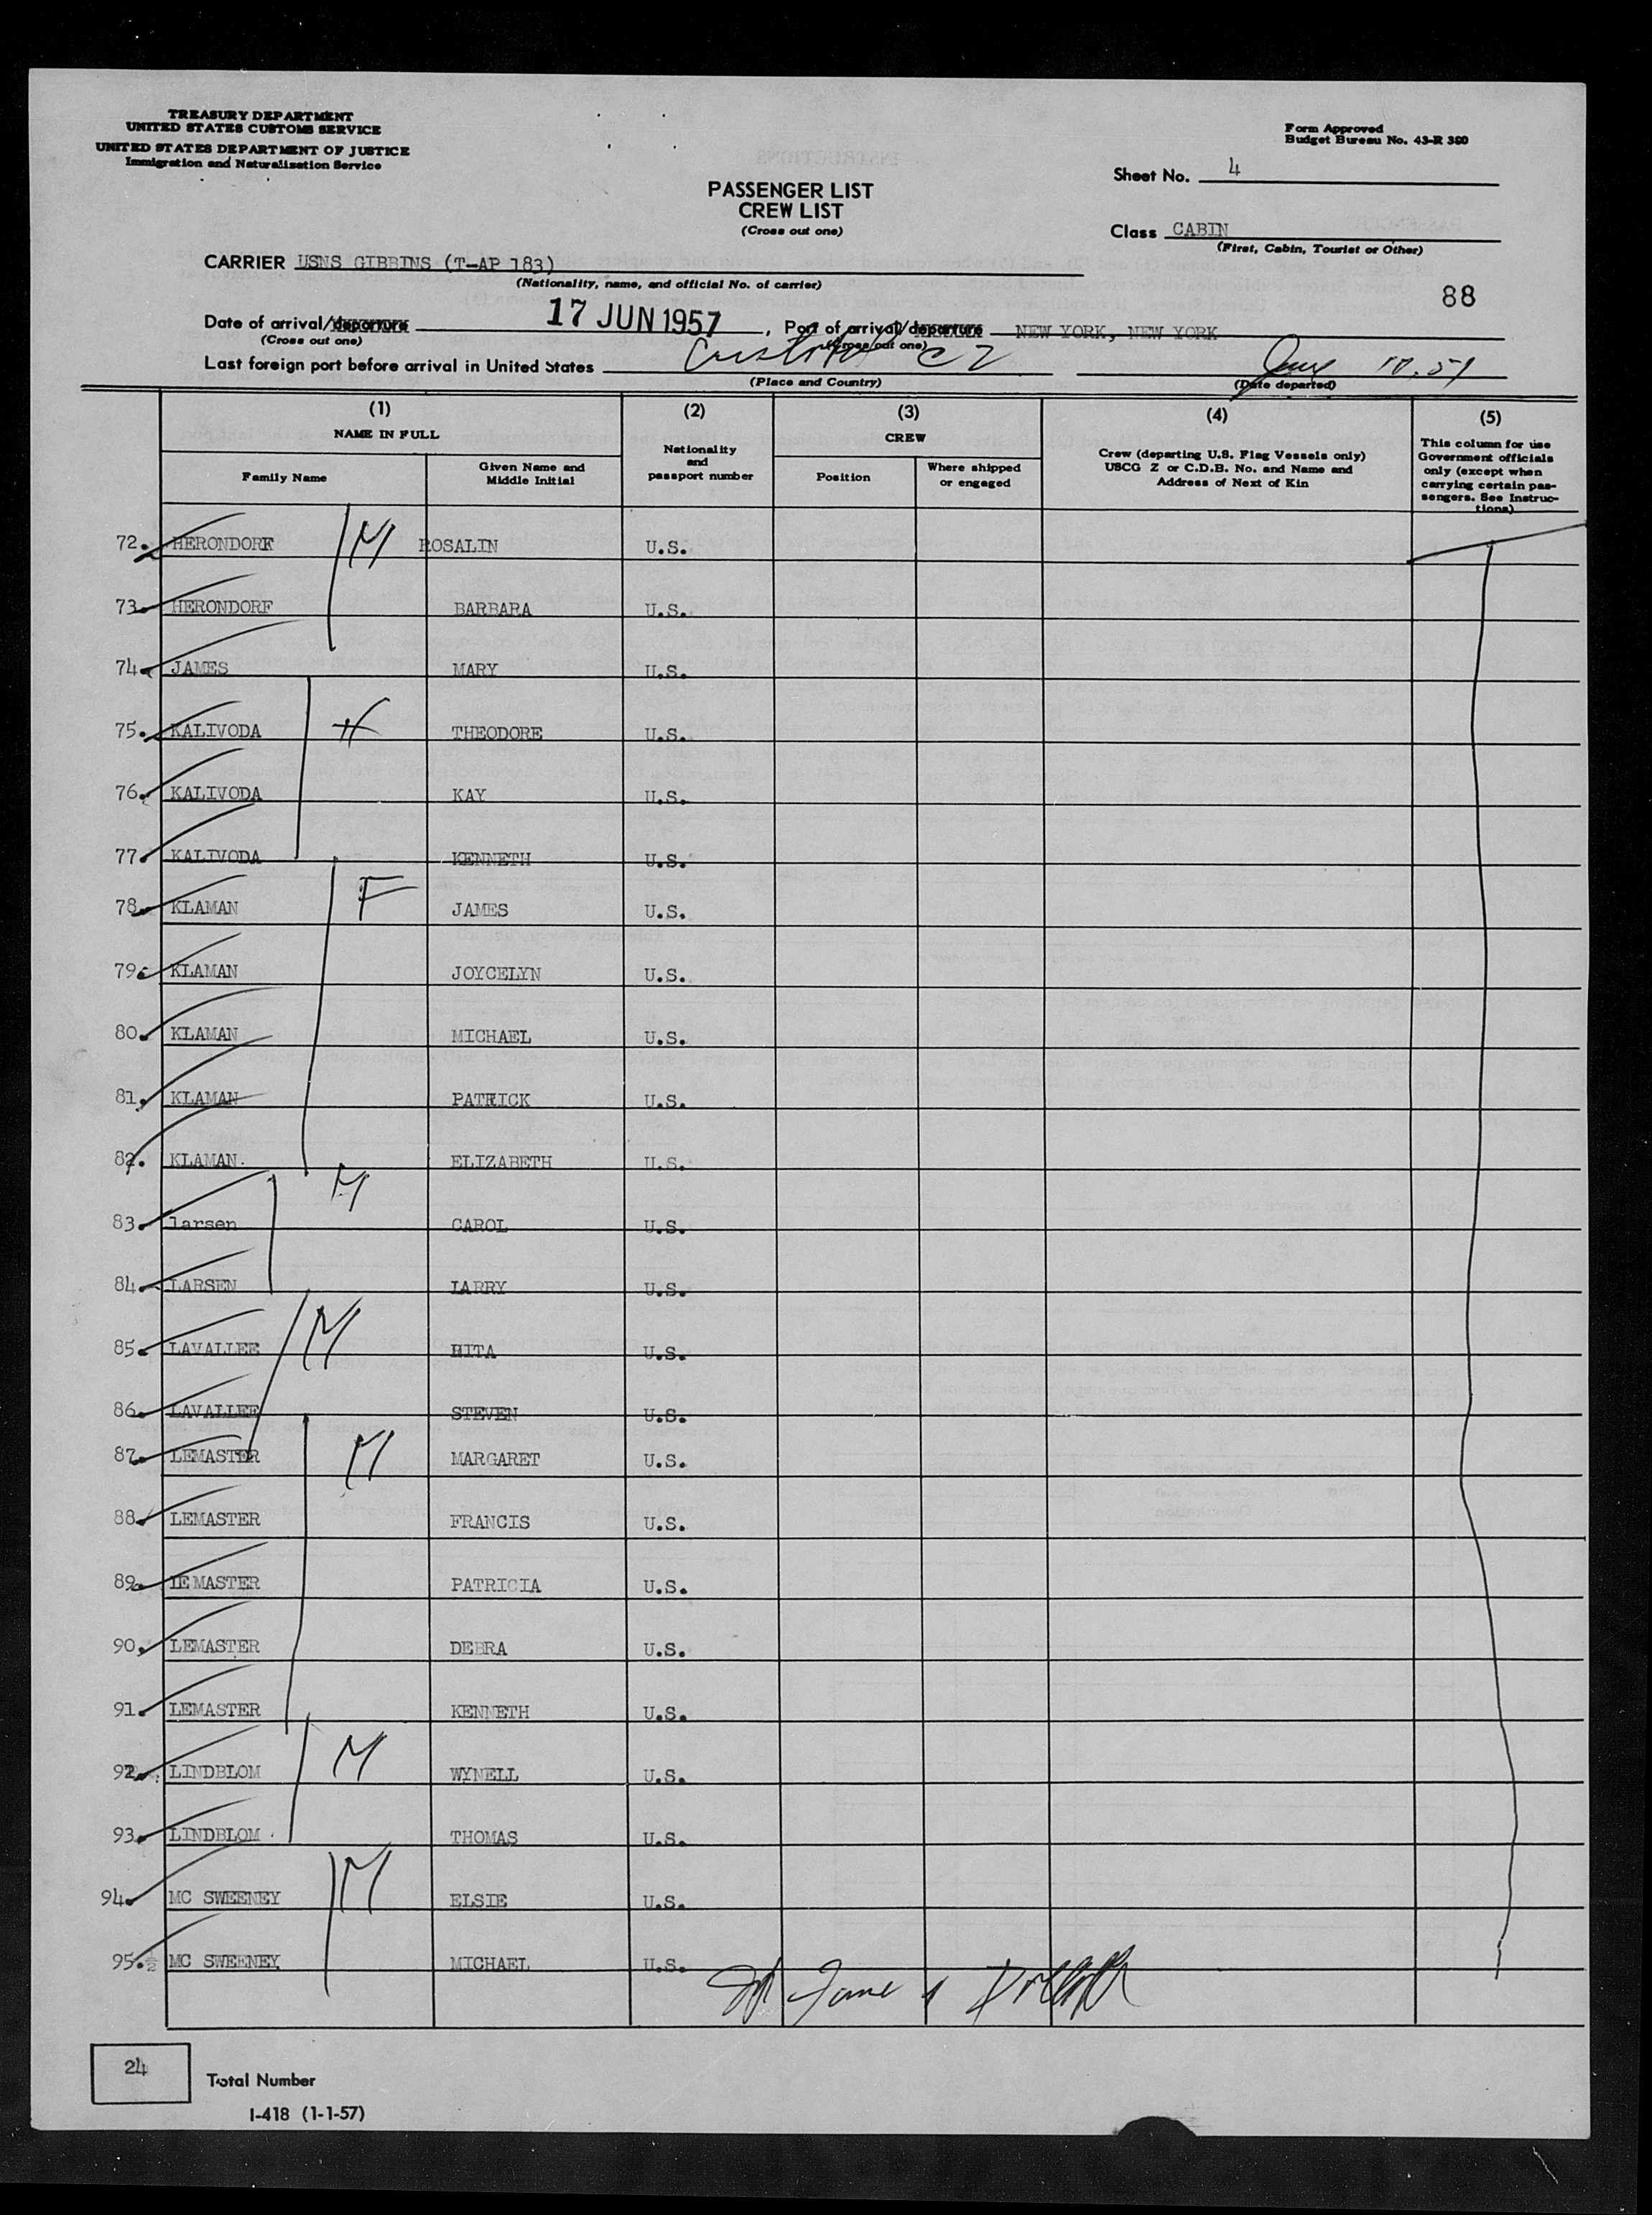 TREASURY DEPARTMENT
UNITED STATES CUSTOMS SERVICE
UNITED STATES DEPARTMENT OF JUSTICE
Immigration and Naturalization Service
Form Approved
Budget Bureau No. 43-R 380
Sheet No. 4
PASSENGER LIST
CREW LIST
(Cross out one)
Class CABIN
(First, Cabin, Tourist or Other)
CARRIER USNS GIBBINS (T-AP 183)
(Nationality, name, and official No. of carrier)
88
Date of arrival/departure 17 JUN 1957, Port of arrival/departure NEW YORK, NEW YORK
(Cross out one) (Cross out one)
Last foreign port before arrival in United States Cristobal CZ June 10, 57
(Place and Country) (Date departed)
(1) (2) (3) (4) (5)
NAME IN FULL
Nationality and passport number
CREW
Crew (departing U.S. Flag Vessels only) USCG Z or C.D.B. No. and Name and Address of Next of Kin
This column for use Government officials only (except when carrying certain passengers. See Instructions)
Family Name Given Name and Middle Initial Position Where shipped or engaged
72. HERONDORF M ROSALIN U.S.
73. HERONDORF BARBARA U.S.
74. JAMES MARY U.S.
75. KALIVODA THEODORE U.S.
76. KALIVODA KAY U.S.
77. KALIVODA KENNETH U.S.
78. KLAMAN F JAMES U.S.
79. KLAMAN JOYCELYN U.S.
80. KLAMAN MICHAEL U.S.
81. KLAMAN PATRICK U.S.
82. KLAMAN ELIZABETH U.S.
83. larsen M CAROL U.S.
84. LARSEN LARRY U.S.
85. LAVALLEE M RITA U.S.
86. LAVALLEE STEVEN U.S.
87. LEMASTER M MARGARET U.S.
88. LEMASTER FRANCIS U.S.
89. LEMASTER PATRICIA U.S.
90. LEMASTER DEBRA U.S.
91. LEMASTER KENNETH U.S.
92. LINDBLOM M WYNELL U.S.
93. LINDBLOM THOMAS U.S.
94. MC SWEENEY M ELSIE U.S.
95. MC SWEENEY MICHAEL U.S.
24
Total Number
I-418 (1-1-57)